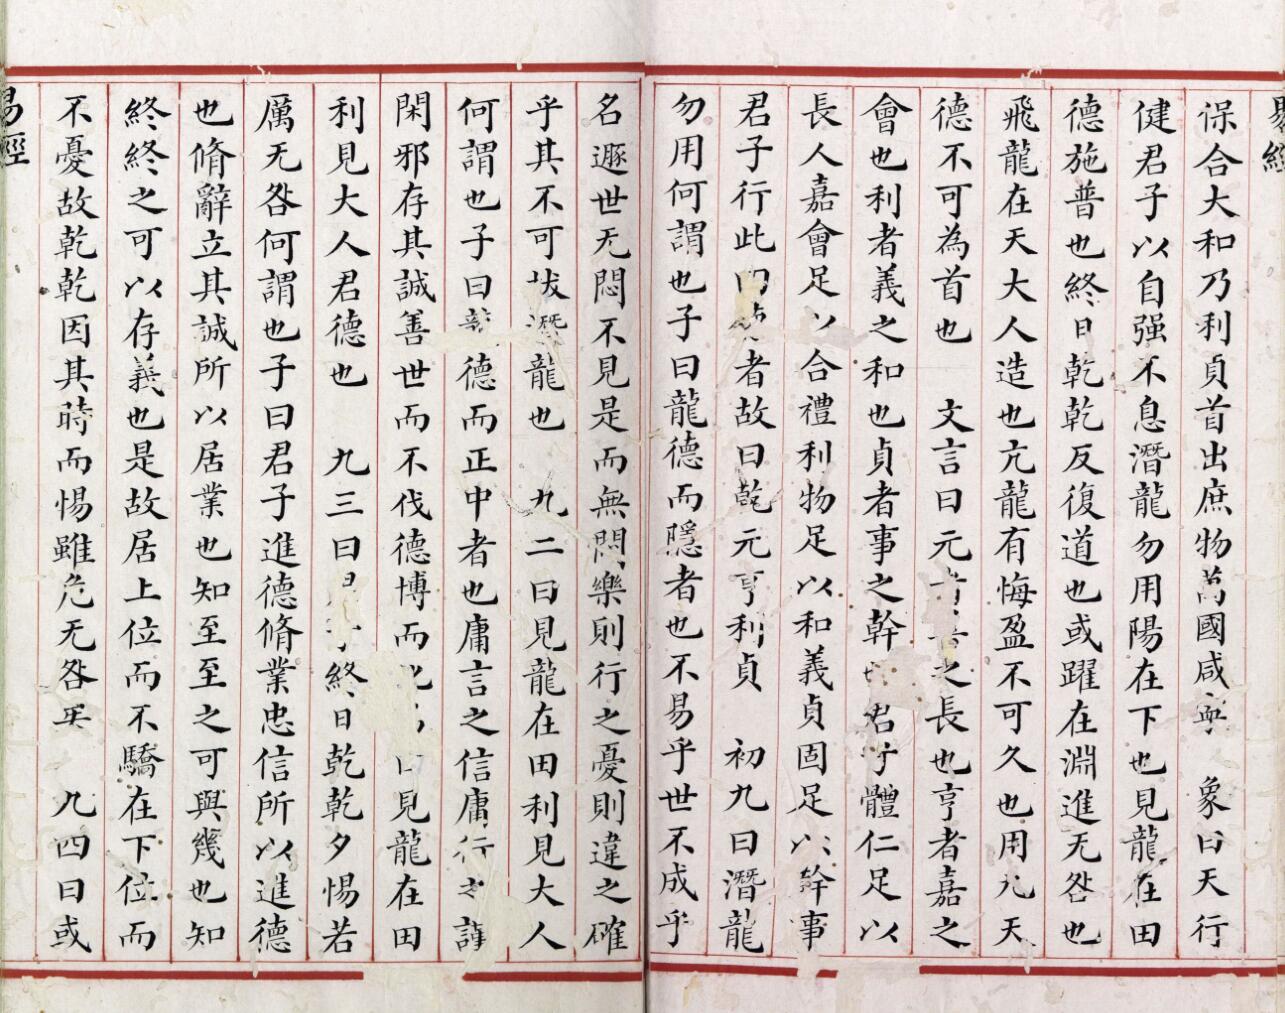 易經
保合大和乃利貞首出庶物萬國咸寧　象曰天行
健君子以自强不息潛龍勿用陽在下也見龍在田
德施普也終日乾乾反復道也或躍在淵進无咎也
飛龍在天大人造也亢龍有悔盈不可久也用九天
德不可為首也　文言曰元之長也亨者嘉之
會也利者義之和也貞者事之幹也君子體仁足以
長人嘉會足以合禮利物足以和義貞固足以幹事
君子行此四德者故曰乾元亨利貞　初九曰潛龍
勿用何謂也子曰龍德而隱者也不易乎世不成乎
名遯世无悶不見是而無悶樂則行之憂則違之確
乎其不可拔潛龍也　九二曰見龍在田利見大人
何謂也子曰龍德而正中者也庸言之信庸行之謹
閑邪存其誠善世而不伐德博而見龍在田
利見大人君德也　九三曰終日乾乾夕惕若
厲无咎何謂也子曰君子進德脩業忠信所以進德
也脩辭立其誠所以居業也知至至之可與幾也知
終終之可以存義也是故居上位而不驕在下位而
不憂故乾乾因其時而惕雖危无咎矣　九四曰或
易經